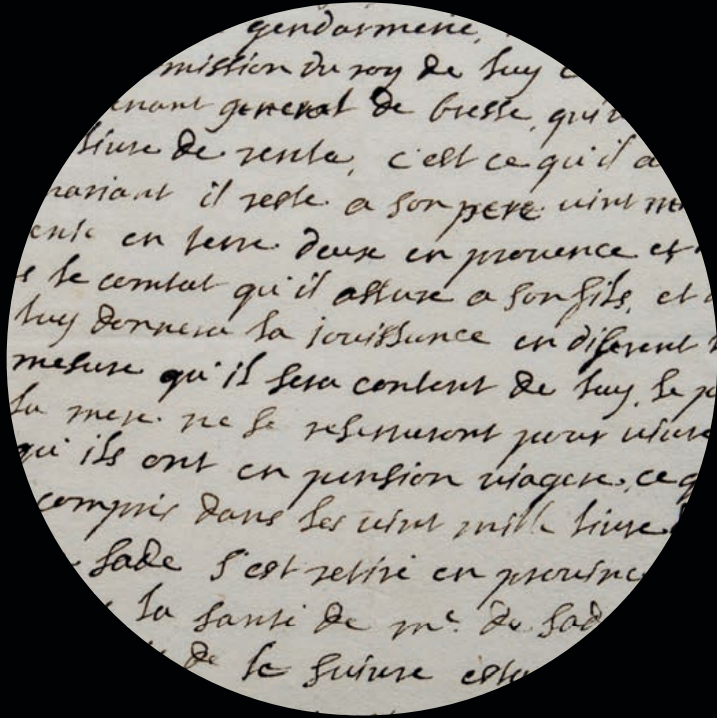 gendarmerie,
mission du roy de luy
general de bresse, qui
livre de rente, c'est ce qu'il a
mariant il reste a son pere vint
en terre deux en provence et
le comtat qu'il assure a son fils, et
luy donnera la jouissance en diferent
mesure qu'il sera content de luy, le
la mere ne se reserveront pour vivre
qu'ils ont en pension viagere, ce q
compris dans les vint mille livre
sade s'est retiré en province
la santé de me. de sad
de le suivre